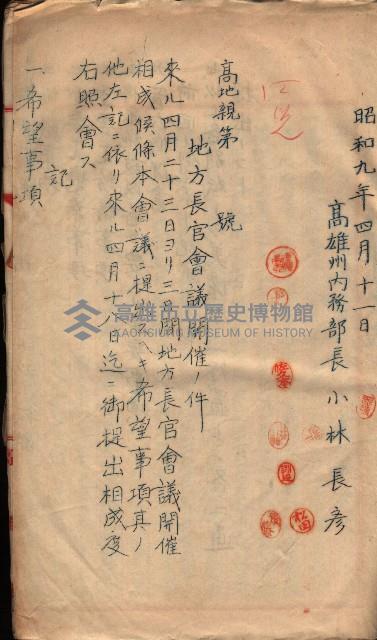 昭和九年四月十一日
高雄州內務部長 小林長彥
高地親第 號
地方長官會議開催ノ件
來ル四月二十三日ヨリ三日間地方長官會議開催
相成候條本會議ニ提出スヘキ希望事項其ノ
他左記ニ依リ來ル四月十八日迄ニ御提出相成度
右照會ス
記
一、希望事項
高雄市立歷史博物館
KAOHSIUNG MUSEUM OF HISTORY
松田